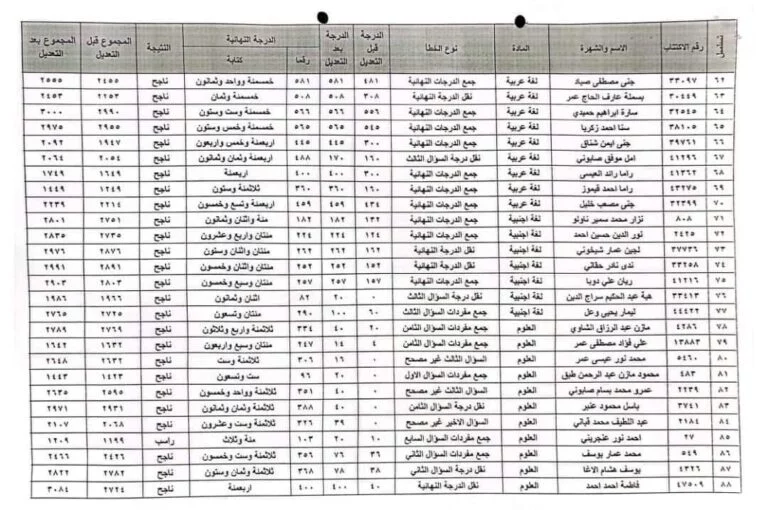 تسلسل | رقم الاكتتاب | الاسم والشهرة | المادة | نوع الخطأ | الدرجة قبل التعديل | الدرجة بعد التعديل | الدرجة النهائية رقما | الدرجة النهائية كتابة | النتيجة | المجموع قبل التعديل | المجموع بعد التعديل
٦٢ | ٣٣٠٩٧ | جنى مصطفى صياد | لغة عربية | جمع الدرجات النهائية | ٤٨١ | ٥٨١ | ٥٨١ | خمسمئة وواحد وثمانون | ناجح | ٢٤٥٥ | ٢٥٥٥
٦٣ | ٣٠٤٤٩ | بسملة عارف الحاج عمر | لغة عربية | نقل الدرجة النهائية | ٣٠٨ | ٥٠٨ | ٥٠٨ | خمسمئة وثمان | ناجح | ٢٢٥٣ | ٢٤٥٣
٦٤ | ٣٢٥٤٥ | سارة ابراهيم حميدي | لغة عربية | جمع الدرجات النهائية | ٥٥٦ | ٥٦٦ | ٥٦٦ | خمسمئة وست وستون | ناجح | ٢٩٩٠ | ٣٠٠٠
٦٥ | ٣٨١٠٥ | سنا احمد زكريا | لغة عربية | جمع الدرجات النهائية | ٥٤٥ | ٥٦٥ | ٥٦٥ | خمسمئة وخمس وستون | ناجح | ٢٩٥٥ | ٢٩٧٥
٦٦ | ٣٩٧٦١ | جنى ايمن شناق | لغة عربية | جمع الدرجات النهائية | ٣٠٠ | ٤٤٥ | ٤٤٥ | اربعمئة وخمس واربعون | ناجح | ١٩٤٧ | ٢٠٩٢
٦٧ | ٤١٢٩٦ | امل موفق صابوني | لغة عربية | نقل درجة السؤال الثالث | ١٦٠ | ١٧٠ | ٤٨٨ | اربعمئة وثمان وثمانون | ناجح | ٢٠٥٤ | ٢٠٦٤
٦٨ | ٤١٣٦٢ | راما رائد العيسى | لغة عربية | جمع الدرجات النهائية | ٣٠٠ | ٤٠٠ | ٤٠٠ | اربعمئة | ناجح | ١٦٤٩ | ١٧٤٩
٦٩ | ٤٣٢٧٥ | راما احمد قيموز | لغة عربية | جمع الدرجات النهائية | ١٦٠ | ٣٦٠ | ٣٦٠ | ثلاثمئة وستون | ناجح | ١٢٤٩ | ١٤٤٩
٧٠ | ٣٢٣٩٩ | جنى مصعب خليل | لغة عربية | جمع الدرجات النهائية | ٤٣٤ | ٤٥٩ | ٤٥٩ | اربعمئة وتسع وخمسون | ناجح | ٢٢١٤ | ٢٢٣٩
٧١ | ٨٠٨ | نزار محمد سمير ناولو | لغة اجنبية | جمع الدرجات النهائية | ١٣٢ | ١٨٢ | ١٨٢ | مئة واثنان وثمانون | ناجح | ٢٧٥١ | ٢٨٠١
٧٢ | ٢٤٢٥ | نور الدين حسين احمد | لغة اجنبية | جمع الدرجات النهائية | ١٢٤ | ٢٢٤ | ٢٢٤ | مئتان واربع وعشرون | ناجح | ٢٧٣٥ | ٢٨٣٥
٧٣ | ٣٧٧٣٦ | لجين عمار شيخوني | لغة اجنبية | نقل الدرجة النهائية | ١٦٢ | ٢٦٢ | ٢٦٢ | مئتان واثنان وستون | ناجح | ٢٨٧٦ | ٢٩٧٦
٧٤ | ٣٣٢٥٨ | ندى نادر حقاني | لغة اجنبية | نقل الدرجة النهائية | ١٥٢ | ٢٥٢ | ٢٥٢ | مئتان واثنان وخمسون | ناجح | ٢٨٩١ | ٢٩٩١
٧٥ | ٤١٢١٦ | ريان علي دوبا | لغة اجنبية | جمع الدرجات النهائية | ١٥٧ | ٢٥٧ | ٢٥٧ | مئتان وسبع وخمسون | ناجح | ٢٨٠٣ | ٢٩٠٣
٧٦ | ٣٣٤١٣ | هبة عبد الحكيم سراج الدين | لغة اجنبية | نقل درجة السؤال الثالث | ٠ | ٢٠ | ٨٢ | اثنان وثمانون | ناجح | ١٩٦٦ | ١٩٨٦
٧٧ | ٤٤٤٢٢ | ليمار يحيى وعل | لغة اجنبية | جمع مفردات السؤال الثالث | ٦٠ | ١٠٠ | ٢٩٠ | مئتان وتسعون | ناجح | ٢٧٢٥ | ٢٧٦٥
٧٨ | ٤٢٨٦ | مازن عبد الرزاق الشاوي | العلوم | جمع مفردات السؤال الثامن | ٢٠ | ٤٠ | ٣٣٤ | ثلاثمئة واربع وثلاثون | ناجح | ٢٧٦٩ | ٢٧٨٩
٧٩ | ١٣٨٨٣ | علي فؤاد مصطفى عمر | العلوم | جمع مفردات السؤال الثامن | ٤ | ١٤ | ٢٤٧ | مئتان وسبع واربعون | ناجح | ١٦٣٢ | ١٦٤٢
٨٠ | ٥٤٦٠ | محمد نور عيسى عمر | العلوم | السؤال الثالث غير مصحح | ٠ | ١٦ | ٣٠٦ | ثلاثمئة وست | ناجح | ٢٦٣٢ | ٢٦٤٨
٨١ | ٤٨٣ | محمود مازن عبد الرحمن طبق | العلوم | جمع مفردات السؤال الاول | ٠ | ٢٠ | ٩٦ | ست وتسعون | ناجح | ١٤٢٣ | ١٤٤٣
٨٢ | ٢٢٣٩ | عمرو محمد بسام صابوني | العلوم | السؤال الثالث غير مصحح | ٠ | ٤٠ | ٣٥١ | ثلاثمئة وواحد وخمسون | ناجح | ٢٥٩٥ | ٢٦٣٥
٨٣ | ٣٧٤١ | باسل محمود عنبر | العلوم | نقل درجة السؤال الثامن | ٠ | ٤٠ | ٣٨٨ | ثلاثمئة وثمان وثمانون | ناجح | ٢٩٣١ | ٢٩٧١
٨٤ | ٢١٨٤ | عبد اللطيف محمد قباني | العلوم | السؤال الاخير غير مصحح | ٠ | ٣٩ | ٣٢٦ | ثلاثمئة وست وعشرون | ناجح | ٢٠٦٨ | ٢١٠٧
٨٥ | ٢٧ | احمد نور عنجريني | العلوم | جمع مفردات السؤال السابع | ١٠ | ٢٠ | ١٠٣ | مئة وثلاث | راسب | ١١٩٩ | ١٢٠٩
٨٦ | ٥٤٩ | محمد عمار يوسف | العلوم | جمع مفردات السؤال الثاني | ٣٦ | ٧٦ | ٣٥٦ | ثلاثمئة وست وخمسون | ناجح | ٢٤٢٦ | ٢٤٦٦
٨٧ | ٤٣٢٦ | يوسف هشام الاغا | العلوم | نقل درجة السؤال الثاني | ٣٨ | ٧٨ | ٣٦٨ | ثلاثمئة وثمان وستون | ناجح | ٢٧٨٢ | ٢٨٢٢
٨٨ | ٤٧٥٠٩ | فاطمة احمد احمد | العلوم | نقل الدرجة النهائية | ٤٠ | ٤٠٠ | ٤٠٠ | اربعمئة | ناجح | ٢٧٢٤ | ٣٠٨٤